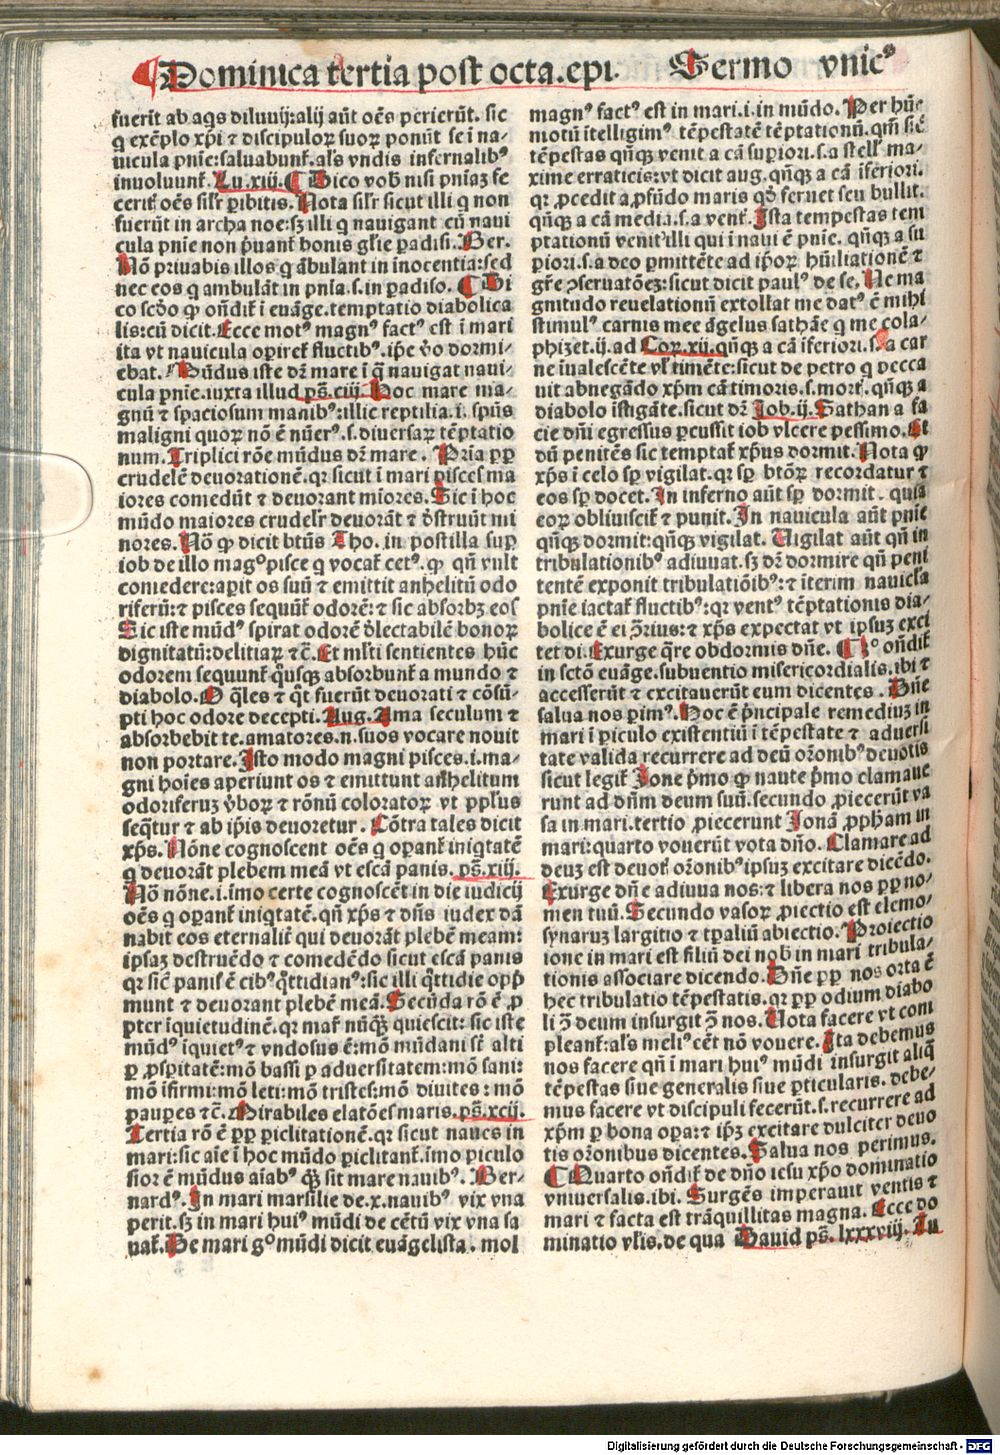 Dominica tertia post octa.epi. Sermo vnicꝰ
fuerit ab aq̄s diluuij:alij aūt oēs perierūt. sic
q exēplo xp̄i ⁊ discipuloꝝ suoꝝ ponūt se ī na⸗
uicula pn̄ie:saluabunt᷑.al's vndis infernalibꝰ
inuoluunt᷑.Lu.xiij. ¶ Dico vob̄ nisi pn̄iaꝫ fe
cerit᷑ oēs sil'r ꝑibitis. Nota sil'r sicut illi q non
fuerūt in archa noe:sꝫ illi q nauigant cū naui
cula pn̄ie non p̄uant᷑ bonis gl'ie ꝑadisi. Ber.
Nō priuabis illos q ābulant in īnocentia:sed
nec eos q ambulāt in pn̄ia.s.in ꝑadiso. ¶ Di
co scd̄o ꝙ on̄dit᷑ ī euāge.temptatio diabolica
lis:cū dicit.Ecce motꝰ magnꝰ factꝰ est ī mari
ita vt nauicula oꝑiret᷑ fluctibꝰ.ip̄e v̄o dormi⸗
ebat. Mūdus iste dr̄ mare ī q̄ nauigat naui⸗
cula pn̄ie.iuxta illud ps̄.ciij.Hoc mare ma⸗
gnū ⁊ spaciosum manibꝰ:illic reptilia.i.spūs
maligni quoꝝ nō ē nūerꝰ.s.diuersaꝝ tēptatio
num.Triplici rōe mūdus dr̄ mare. Pria ꝑꝑ
crudelē deuorationē.qꝛ sicut ī mari pisces ma
iores comedūt ⁊ deuorant mīores.Sic ī hoc
mūdo maiores crudelr̄ deuorāt ⁊ dr̄struūt mi
nores.Nō ꝙ dicit btūs Tho.in postilla suꝑ
iob de illo magᵒ pisce q vocat᷑ cetꝰ.ꝙ qn̄ vult
comedere:aꝑit os suū ⁊ emittit anhelitū odo
riferū:⁊ pisces sequūt᷑ odorē:⁊ sic absorbꝫ eos
Sic iste mūdꝰ spirat odorē dlectabilē bonoꝝ
dignitatū:delitiaꝝ ⁊c̄.Et ml'ti sentientes hūc
odorem sequunt᷑ q̄usqꝫ absorbunt᷑ a mundo ⁊
diabolo.O q̄les ⁊ q̄t fuerūt deuorati ⁊ cōsū⸗
pti hoc odore decepti.Aug.Ama seculum ⁊
absorbebit te.amatores.n.suos vocare nouit
non portare.Isto modo magni pisces.i.ma⸗
gni hoīes aperiunt os ⁊ emittunt anhelitum
odoriferuꝫ v̄boꝝ ⁊ rōnū coloratoꝝ vt ppl'us
seq̄tur ⁊ ab ip̄is deuoretur. Cōtra tales dicit
xp̄s. Nōne cognoscent oēs q operant᷑ iniq̇tatē
q deuorāt plebem meā vt escā panis.ps̄.xiij.
Nō nōne.i.īmo certe cognoscēt in die iudicij
oēs q operant᷑ iniq̇tatē.qn̄ xp̄s ⁊ dn̄s iudex dā
nabit eos eternalit᷑ qui deuorāt plebē meam:
ipsaꝫ destruēdo ⁊ comedēdo sicut escā panis
qꝛ sic̄ panis ē cibꝰ q̄ttidianꝰ:sic illi q̄ttidie opp̄
munt ⁊ deuorant plebē meā.Secūda rō ē ꝓ
pter īquietudinē.qꝛ mar̄ nūq̄ꝫ quiescit:sic iste
mūdꝰ īquietꝰ ⁊ vndosus ē:mō mūdani st̄ alti
ꝑ ꝓsꝑitatē:mō bassi ꝑ aduersitatem:mō sani:
mō īfirmi:mō leti:mō tristes:mō diuites:mō
pauꝑes ⁊c̄.Mirabiles elatōes maris.ps̄.xcij.
Tertia rō ē ꝑꝑ ꝑiclitationē.qꝛ sicut naues in
mari:sic aīe ī hoc mūdo ꝑiclitant᷑.īmo ꝑiculo
sioꝛ ē mūdus aīabꝰ q̄ꝫ sit mare nauibꝰ. Ber⸗
nardꝰ.In mari marsilie de.x.nauibꝰ vix vna
perit.sꝫ in mari huiꝰ mūdi de cētū vix vna sa
uat᷑.De mari gᵒ mūdi dicit euāgelista. mot
magnꝰ factꝰ est in mari.i.in mūdo. Per hūc
motū ītelligimꝰ tēpestatē tēptationū.qm̄ sic̄
tēpestas qn̄qꝫ venit a cā suꝑiori.s.a stell' ma⸗
xime erraticis:vt dicit aug.qn̄qꝫ a cā īferiori.
qꝛ ꝓcedit a ꝓfūdo maris qd̄ feruet seu bullit.
qn̄qꝫ a cā media.s.a vent᷑.Ista tempestas tem
ptationū venit illi qui ī naui ē pn̄ie. qn̄qꝫ a su
ꝑiori.s.a deo ꝑmittēte ad ip̄oꝝ hūiliationē ⁊
gr̄e ꝯseruatōeꝫ:sicut dicit paulꝰ de se. Ne ma
gnitudo reuelationū extollat me datꝰ ē mihi
stimulꝰ carnis mee āgelus sathāe q me cola⸗
phizet.ij.ad Coꝝ.xij.qn̄qꝫ a cā īferiori.s.a car
ne īualescēte vl' timēte:sicut de petro q pecca
uit abnegādo xp̄m cā timoris.s.mort᷑.qn̄qꝫ a
diabolo īstigāte.sicut dr̄ Job.ij.Sathan a fa
cie dn̄i egressus ꝑcussit iob vlcere pessimo.Et
dū penitēs sic temptat᷑ xp̄us dormit. Nota ꝙ
xp̄s ī celo sꝑ vigilat.qꝛ sꝑ btōꝝ recordatur ⁊
eos sꝑ docet. In inferno aūt sꝑ dormit. quia
eoꝝ obliuiscit᷑ ⁊ punit. In nauicula aūt pn̄ie
qn̄qꝫ dormit:qn̄qꝫ vigilat. Uigilat aūt qn̄ in
tribulationibꝰ adiuuat.sꝫ dr̄ dormire qn̄ peni
tentē exponit tribulatiōibꝰ:⁊ īterim nauicl'a
pn̄ie iactat᷑ fluctibꝰ:qꝛ ventꝰ tēptationis dia⸗
bolice ē ei ꝯrius:⁊ xp̄s expectat vt ipsuꝫ exci
tet di.Exurge q̄re obdormis dn̄e. ¶ Tᵒ on̄dit᷑
in sctō euāge.subuentio misericordialis.ibi ⁊
accesserūt ⁊ excitauerūt eum dicentes. Dn̄e
salua nos ꝑimꝰ.Hoc ē p̄ncipale remediuꝫ in
mari ī ꝑiculo existentiū ī tēpestate ⁊ aduersi
tate valida recurrere ad deū or̄onibꝰ deuotis
sicut legit᷑ Jone p̄mo ꝙ naute p̄mo clamaue
runt ad dn̄m deum suū.secundo ꝓiecerūt va
sa in mari.tertio ꝓiecerunt Jonā ꝓpham in
mari:quarto vouerūt vota dn̄o. Clamare ad
deuꝫ est deuot᷑ or̄onibꝰ ipsuꝫ excitare dicēdo.
Exurge dn̄e adiuua nos:⁊ libera nos ꝑꝑ no⸗
men tuū.Secundo vasoꝝ ꝓiectio est elemo⸗
synaruꝫ largitio ⁊ tꝑaliū abiectio. Proiectio
ione in mari est filiū dei nob̄ in mari tribula⸗
tionis associare dicendo.Dn̄e ꝑꝑ nos orta ē
hec tribulatio tēpestatis.qꝛ ꝑꝑ odium diabo
li ꝯ̄ deum insurgit ꝯ̄ nos. Uota facere vt com
pleant᷑:al's meliꝰ eēt nō vouere. Ita debemus
nos facere qn̄ ī mari huiꝰ mūdi insurgit aliq̄
tēpestas siue generalis siue ꝑticularis. debe⸗
mus facere vt discipuli fecerūt.s.recurrere ad
xp̄m ꝑ bona oꝑa:⁊ ip̄ꝫ excitare dulciter deuo
tis or̄onibus dicentes. Salua nos perimus.
¶ Quarto on̄dit᷑ de dn̄o iesu xp̄o dominatio
vniuersalis.ibi. Surgēs imperauit ventis ⁊
mari ⁊ facta est trāquillitas magna. Ecce do
minatio vl'is.de qua Dauid ps̄.lxxxviij.Tu
Digitalisierung gefördert durch die Deutsche Forschungsgemeinschaft - DFG